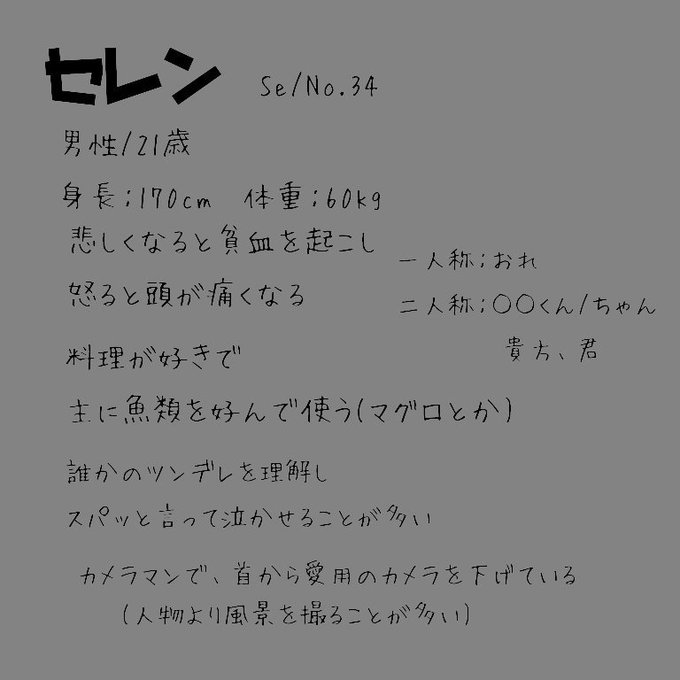 セレン Se/No.34
男性/21歳
身長;170cm 体重;60kg
悲しくなると貧血を起こし
怒ると頭が痛くなる
一人称;おれ
二人称;〇〇くん/ちゃん
貴方、君
料理が好きで
主に魚類を好んで使う(マグロとか)
誰かのツンデレを理解し
スパッと言って泣かせることが多い
カメラマンで、首から愛用のカメラを下げている
(人物より風景を撮ることが多い)